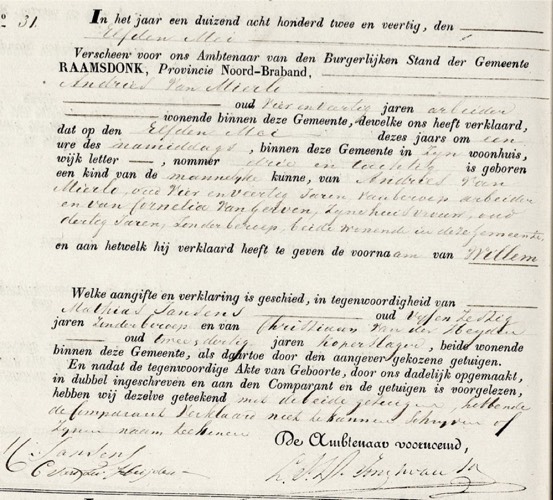 No 31.
In het jaar een duizend acht honderd twee en veertig, den
Elfden Mei
Verscheen voor ons Ambtenaar van den Burgerlijken Stand der Gemeente
RAAMSDONK, Provincie Noord-Braband,
Andries Van Mierlo
oud Vier en Veertig jaren arbeider
wonende binnen deze Gemeente, dewelke ons heeft verklaard,
dat op den Elfden Mei dezes jaars om een
ure des namiddags, binnen deze Gemeente in Zyn woonhuis,
wijk letter —, nommer drie en tachtig is geboren
een kind van de mannelyke kunne, van Andries Van
Mierlo, oud Vier en veertig Jaren Van beroep arbeider
en van Cornelia Van Gorven, Zyne huisvrouw, oud
dertig Jaren, Zonder beroep, beide wonende in deze gemeente,
en aan hetwelk hij verklaard heeft te geven de voornaam van Willem
Welke aangifte en verklaring is geschied, in tegenwoordigheid van
Mathias Jansens oud Vyf en Zestig
jaren Zonder beroep en van Christiaan Van der Heyden
oud twee en dertig jaren Koperslager, beide wonende
binnen deze Gemeente, als daartoe door den aangever gekozene getuigen.
En nadat de tegenwoordige Akte van Geboorte, door ons dadelijk opgemaakt,
in dubbel ingeschreven en aan den Comparant en de getuigen is voorgelezen,
hebben wij dezelve geteekend met de beide getuigen, hebbende
de Comparant Verklaard niet te kunnen Schryven of
Zynen naam teekenen
De Ambtenaar voornoemd,
M Jansens
C van der Heijden